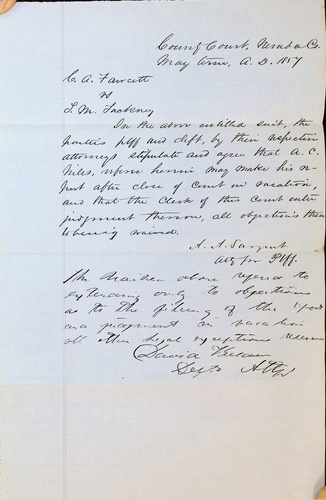 County Court, Nevada Co.
May term, A. D. 1857
C. A. Fawcett
vs
T. M. Lackney
In the above entitled suit, the
parties plff and deft, by their respective
attorneys stipulate and agree that A. C.
Niles, referee herein may make his re-
port after close of court in vacation,
and that the Clerk of this Court enter
judgment thereon, all objections there
to being waived.
A. A. Sargent
Atty for Plff.
The waiver above refered to
extending only to objections
as to the fileing of the report
and judgment in vacation
all other legal exceptions reserved
David
Defts Atty